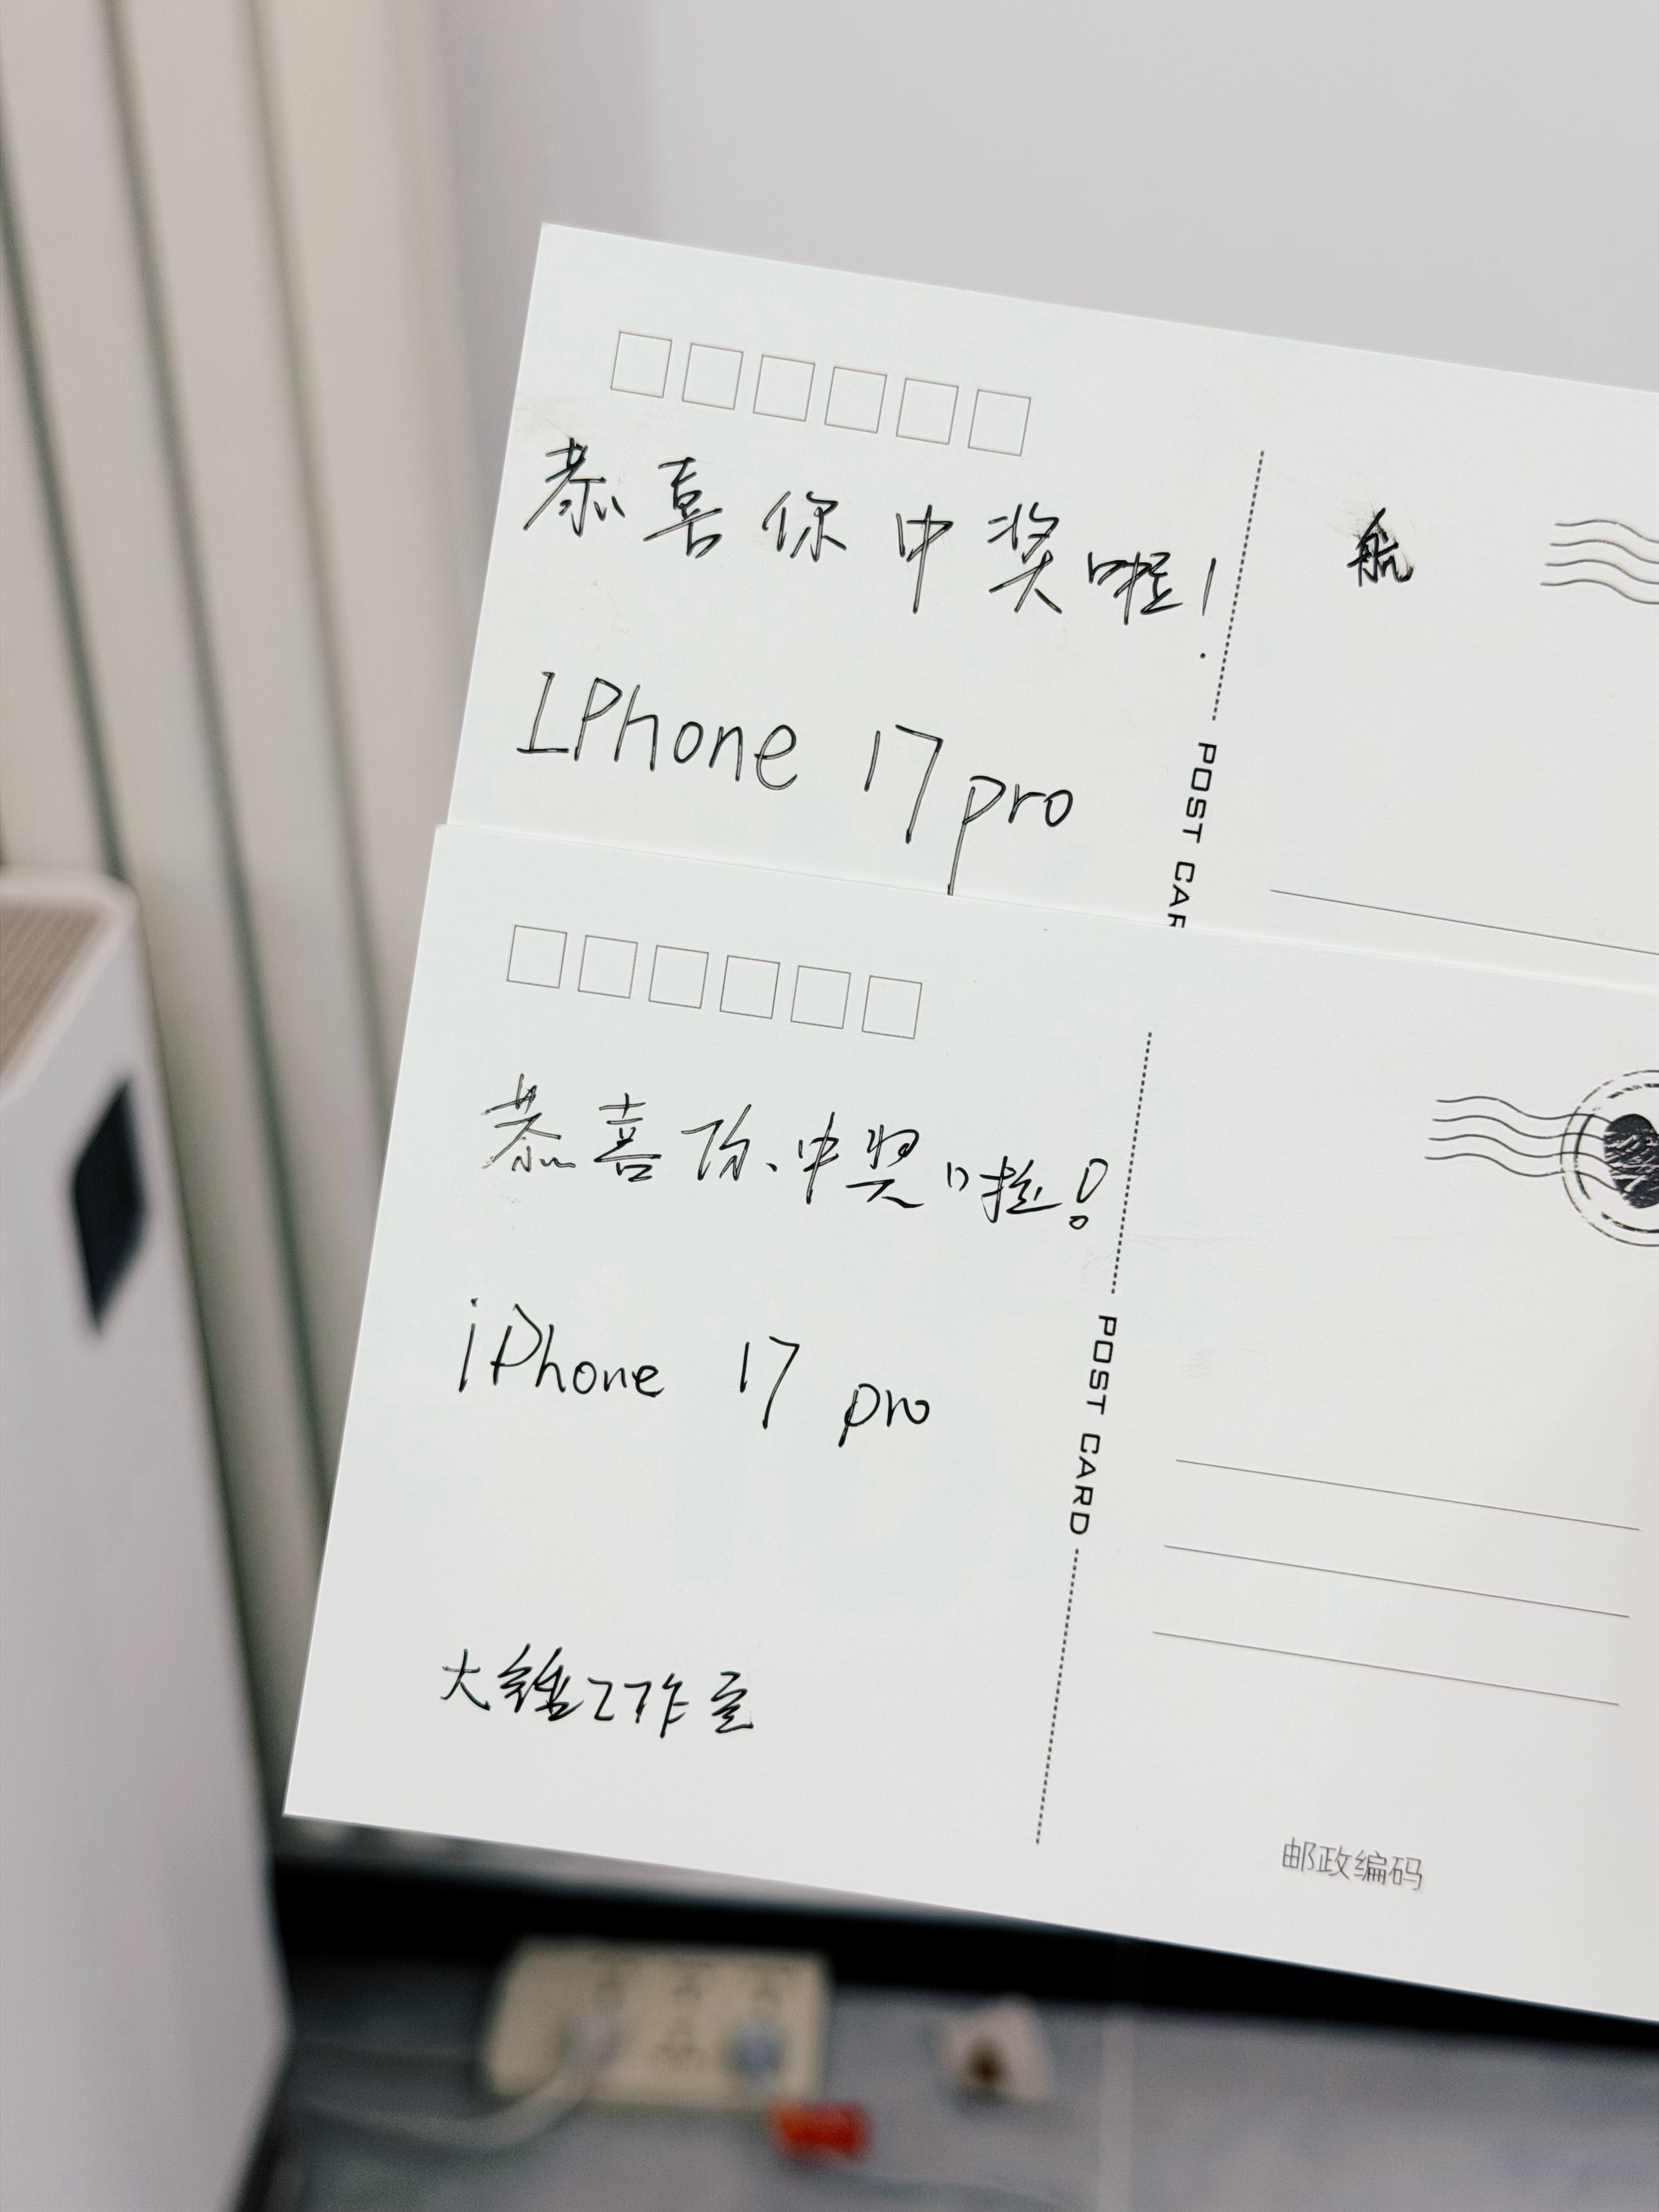 恭喜你中奖啦！
航
IPhone 17 pro
POST CAR
恭喜你中奖啦！
iPhone 17 pro
POST CARD
大 工作室
邮政编码